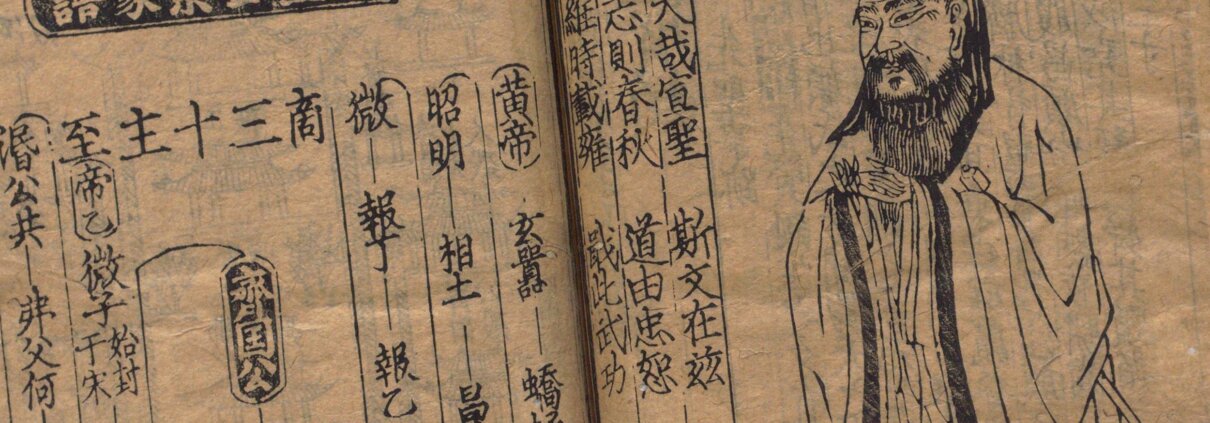 大哉宣聖 斯文在茲
志則春秋 道由忠恕
維時載雍 戢此武功
家語
黄帝 玄囂 蟜
昭明 相土 昌
微 報丁 報乙
齊国公
商三十主
至帝乙微子始封于宋
湣公共 弗父何